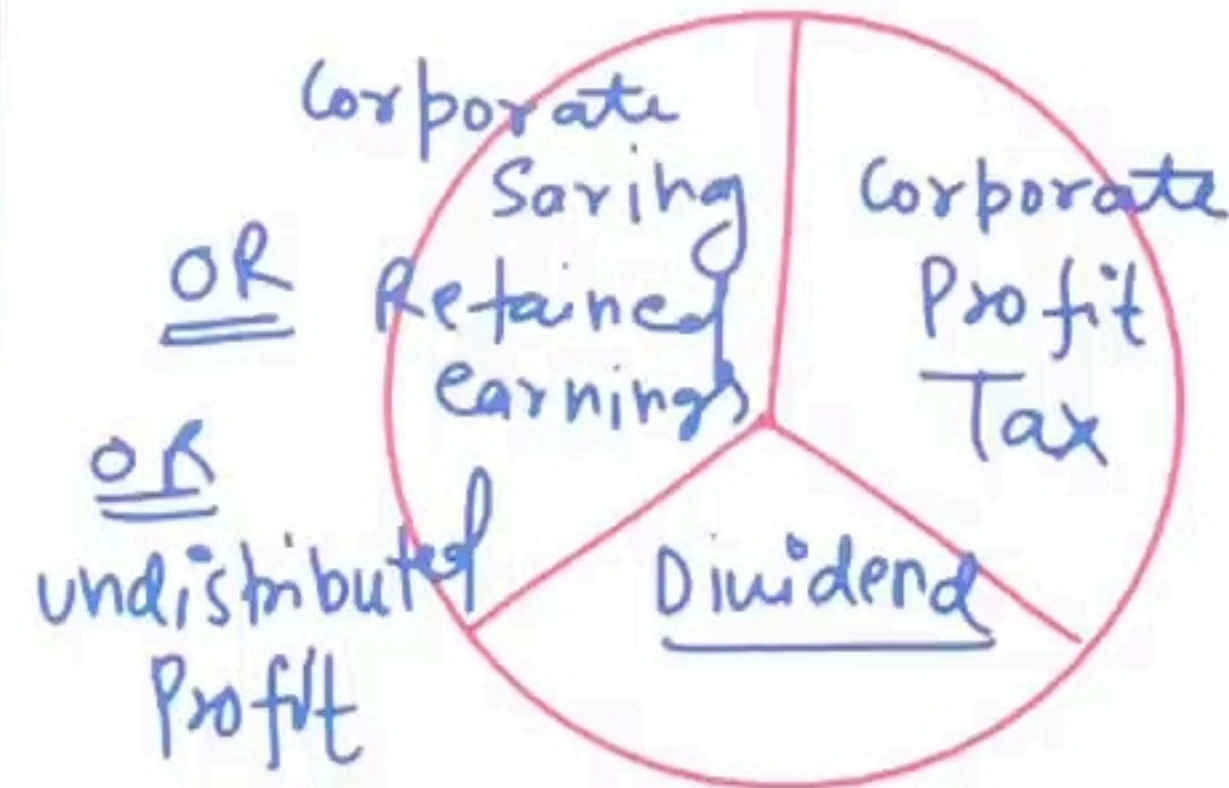 Corporate
Saving
OR Retained
earnings
OR
undistributed
Profit
Corporate
Profit
Tax
Dividend